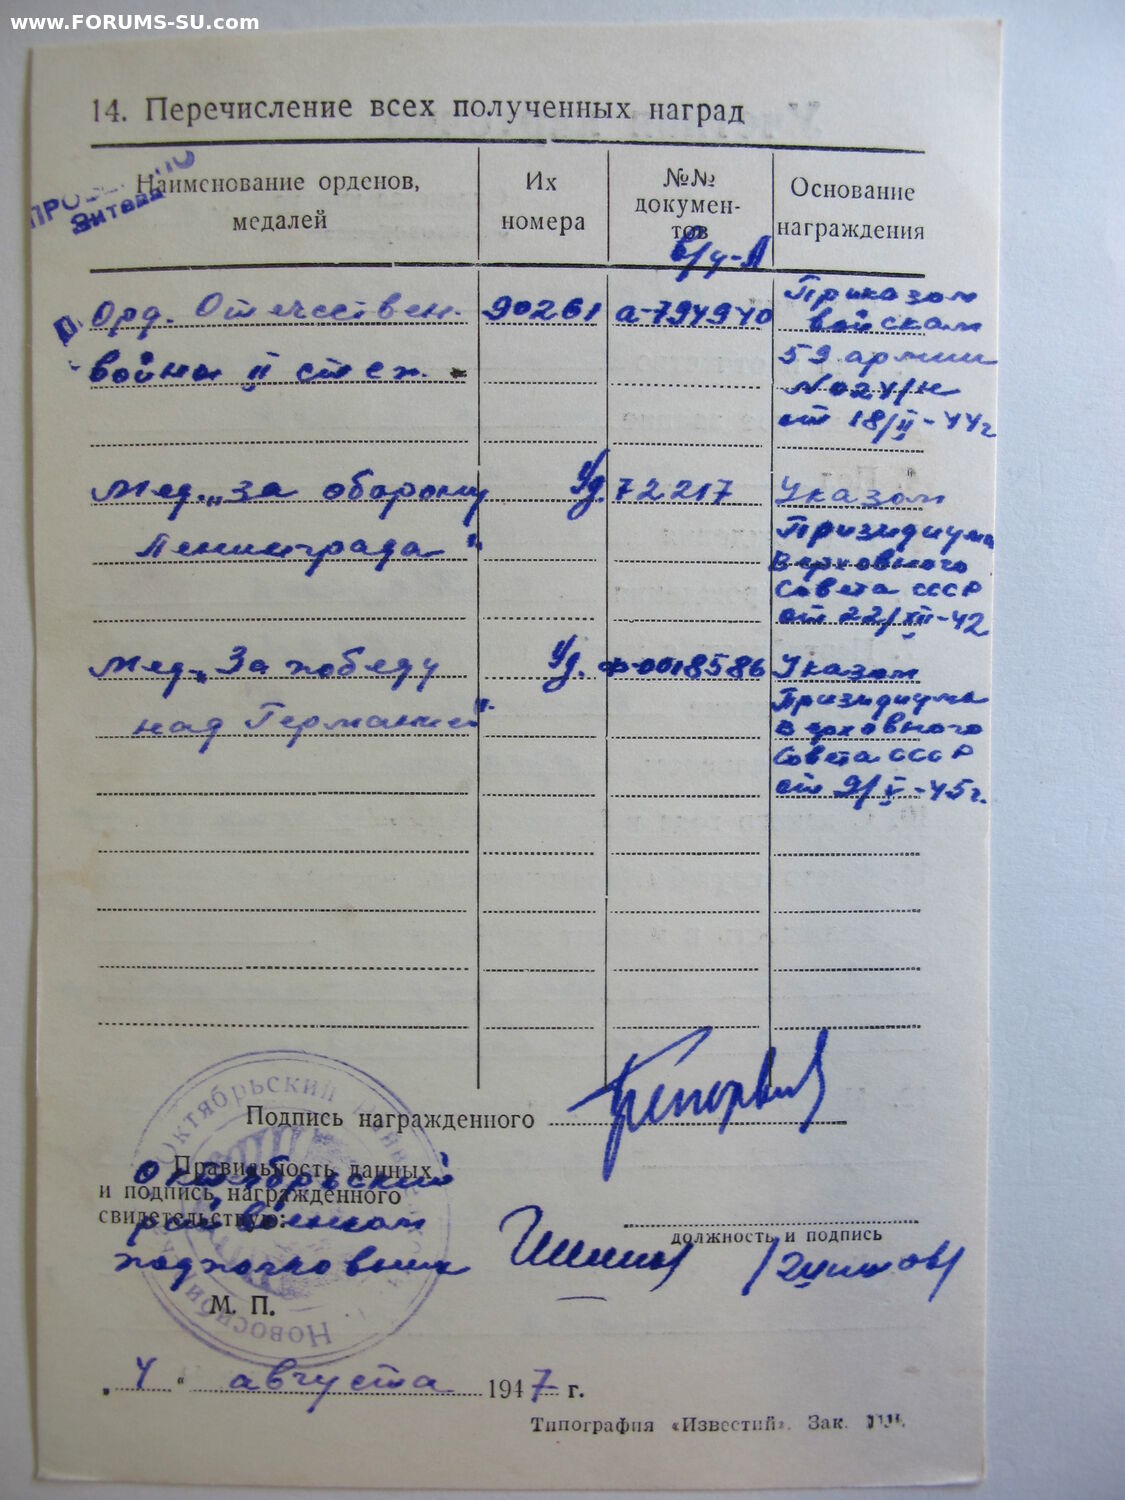 www.FORUMS-SU.com
14. Перечисление всех полученных наград
Наименование орденов, медалей
Их номера
№№ документов
Основание награждения
Орд. Отечествен. 90261 а-794940 Приказом
войскам
войны II степ. 59 армии
№024/н
от 18/II-44г
Мед. „За оборону Уд. 72217 Указом
Ленинграда" Призидиума
Верховного
Совета СССР
от 22/XII-42
Мед. „За победу Уд. 0018586 Указом
над Германией" Призидиума
Верховного
Совета СССР
от 9/V-45г.
Октябрьский
Подпись награжденного
Правильность данных
и подпись награжденного
свидетельствую:
Октябрьский
рай военком
подполковник
должность и подпись
М. П.
Новосибирск
„4" августа 1947 г.
Типография «Известий». Зак.